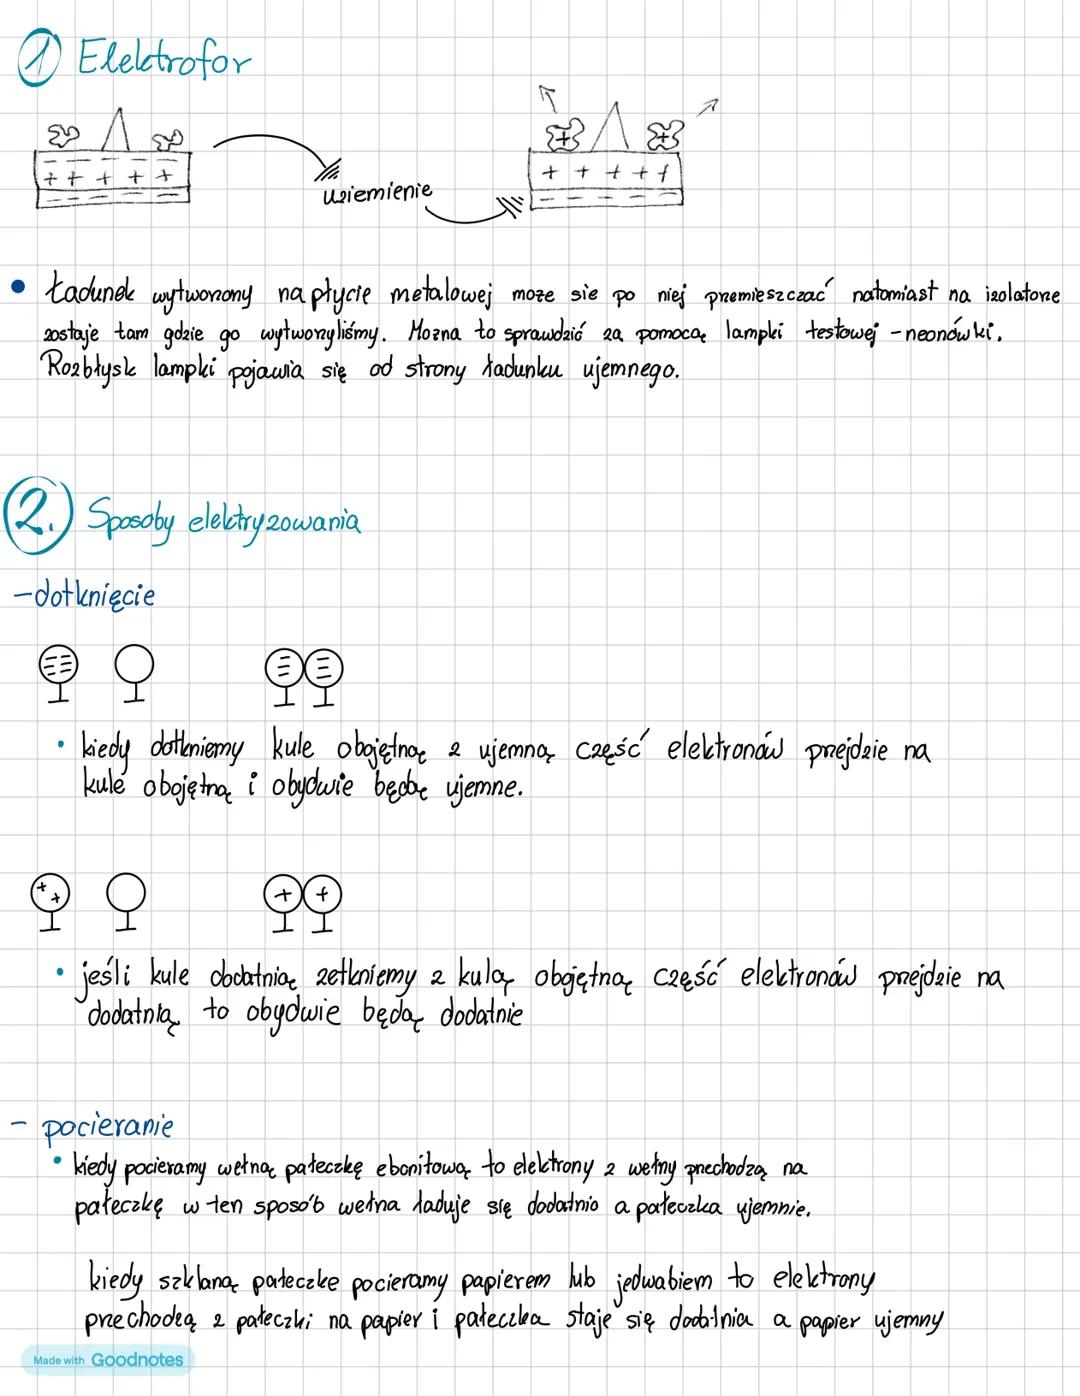 1 Elektrofor
uziemienie
• Ładunek wytworzony na płycie metalowej może sie po niej przemieszczać natomiast na izolatorze
zostaje tam gdzie go wytworzyliśmy. Można to sprawdzić za pomocą lampki testowej - neonówki.
Rozbłysk lampki pojawia się od strony ładunku ujemnego.
2. Sposoby elektryzowania
- dotknięcie
• kiedy dotkniemy kule obojętną z ujemną część elektronów przejdzie na
kule obojętną i obydwie będą ujemne.
• jeśli kule dodatnią zetkniemy z kulą obojętną część elektronów przejdzie na
dodatnią to obydwie będą dodatnie
- pocieranie
• kiedy pocieramy wełną pałeczkę ebonitową to elektrony z wełny przechodzą na
pałeczkę w ten sposób wełna ładuje się dodatnio a pałeczka ujemnie.
kiedy szklaną pałeczke pocieramy papierem lub jedwabiem to elektrony
przechodzą z pałeczki na papier i pałeczka staje się dodatnia a papier ujemny
Made with Goodnotes